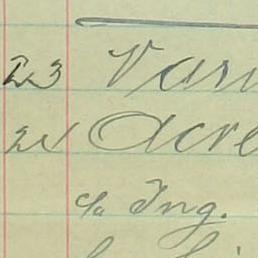 23 Vari
24 Acre
c/o Ing.